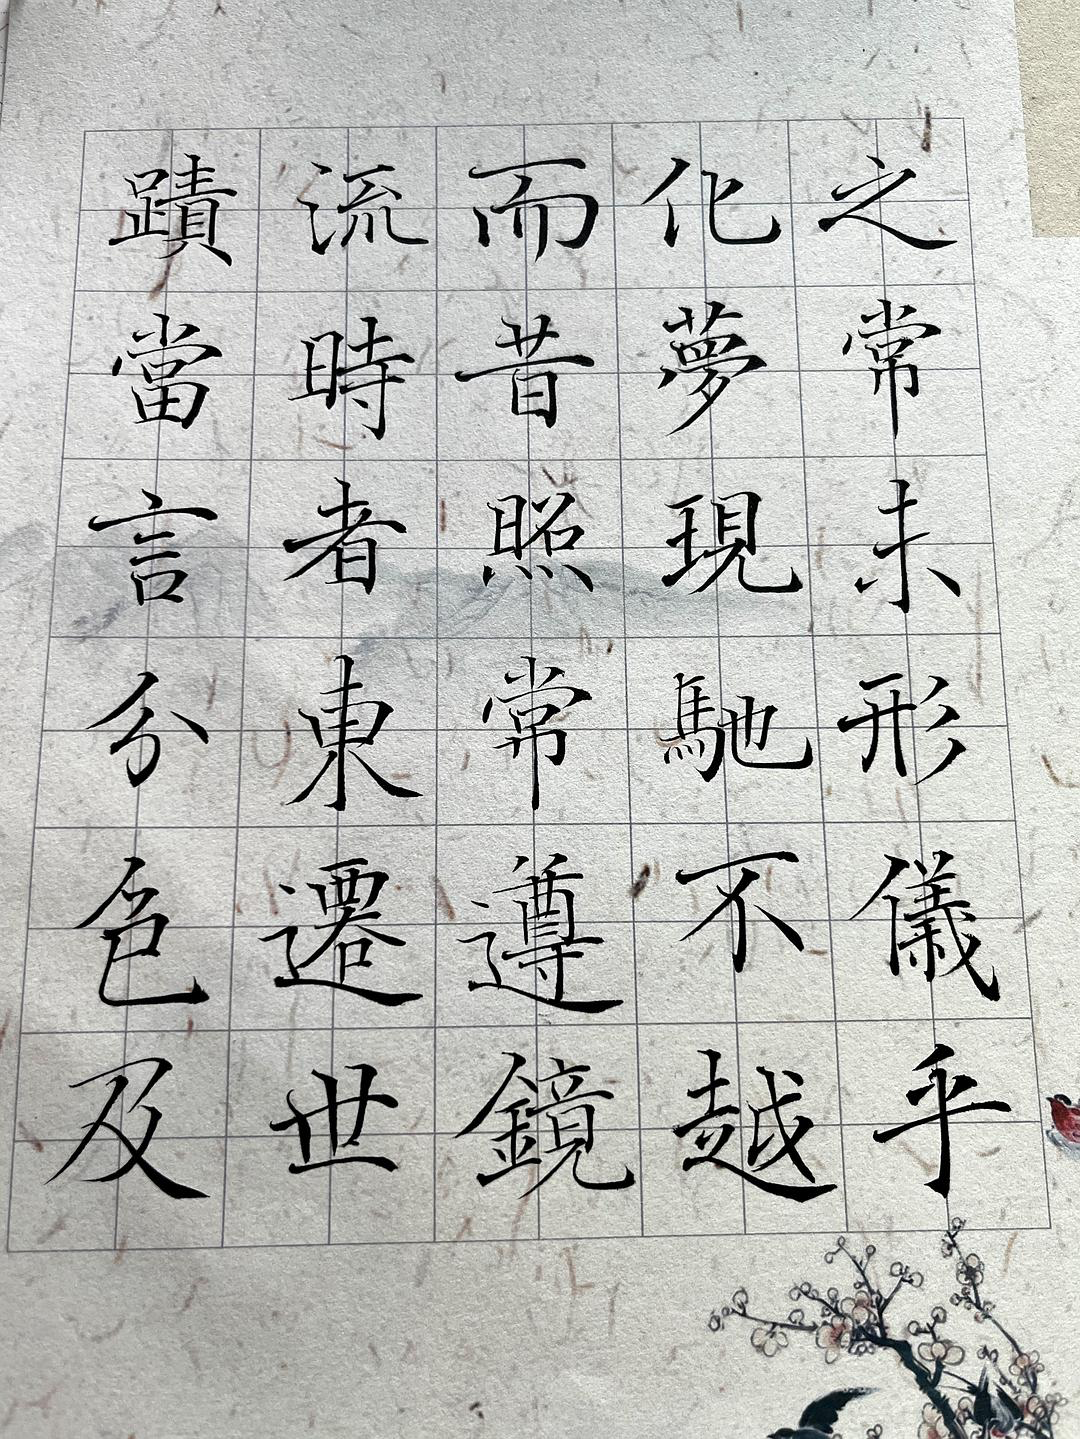 之常未形儀乎
化夢現馳不越
而昔照常遵鏡
流時者東遷世
蹟當言分色及